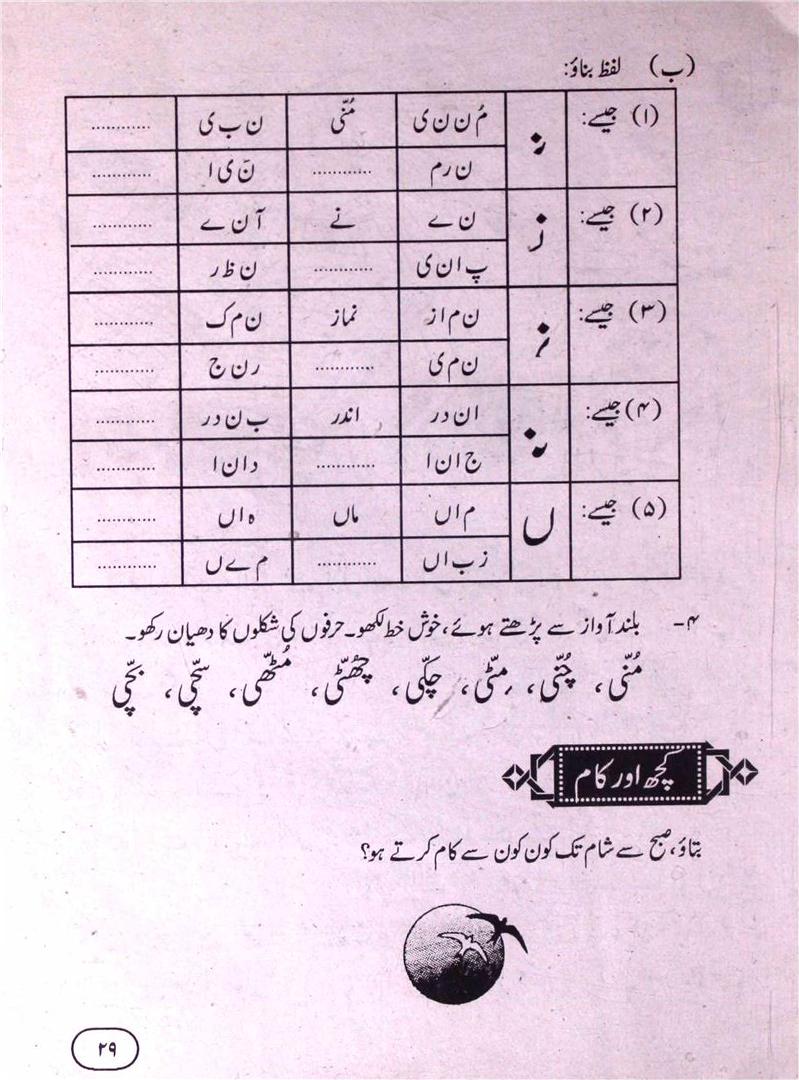 (ب) لفظ بناؤ:
(۱) جیسے: نـ مُ ن ن ی مُنّی ن ب ی ............
ن ر م ............ نّ ی ا ............
(۲) جیسے: ن ے نے آ ن ے ............
پ ا ن ی ............ ن ظ ر ............
(۳) جیسے: ن م ا ز نماز ن م ک ............
ن م ی ............ ر ن ج ............
(۴) جیسے: ا ن د ر اندر ب ن د ر ............
ج ا ن ا ............ د ا ن ا ............
(۵) جیسے: ں م ا ں ماں ہ ا ں ............
ز ب ا ں ............ م ے ں ............
۴- بلند آواز سے پڑھتے ہوئے، خوش خط لکھو۔ حرفوں کی شکلوں کا دھیان رکھو۔
مُنّی، چُنّی، مِٹّی، چکّی، چھُٹّی، مُٹھّی، سچّی، بچّی
کچھ اور کام
بتاؤ، صبح سے شام تک کون کون سے کام کرتے ہو؟
۲۹